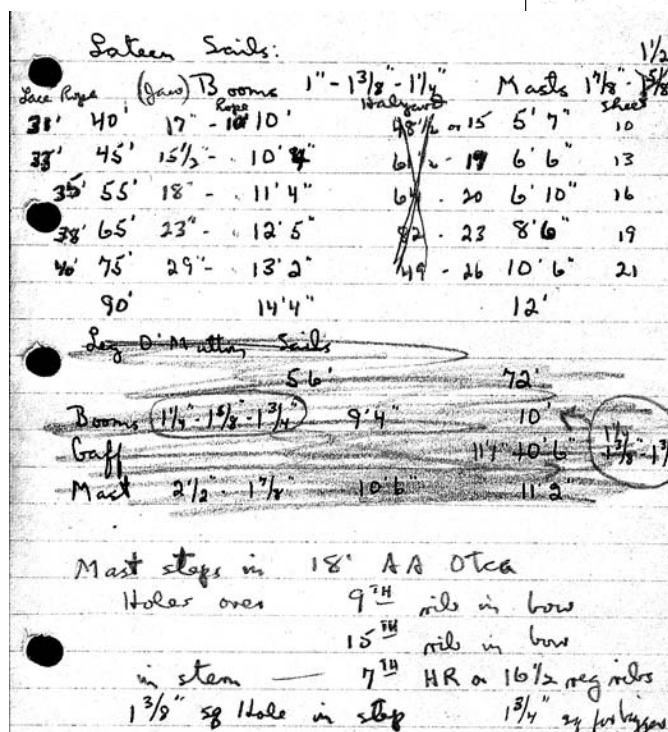 1 1/2
Lateen Sails:
Lace Rope (Jaw) Booms 1" - 1 3/8" - 1 1/4" Masts 1 7/8" - 1 5/8
Rope Halyard Sheet
31' 40' 17" - 10' 15 5' 7" 10
33' 45' 15 1/2" - 10' 4" 19 6' 6" 13
35' 55' 18" - 11' 4" 64 - 20 6' 10" 16
38' 65' 23" - 12' 5" 82 - 23 8' 6" 19
40' 75' 29" - 13' 2" 49 - 26 10' 6" 21
90' 14' 4" 12'
Leg O' Mutton Sails
56' 72'
Booms 1 1/4" - 1 5/8" - 1 3/4" 9' 4" 10'
Gaff 10' 6" 1 3/8" - 1 3/
Mast 2 1/2" - 1 7/8" 10' 6" 11' 2"
Mast steps in 18' AA Otca
Holes over 9TH rib in bow
15TH rib in bow
in stern — 7TH HR or 16 1/2 reg ribs
1 3/8" sq Hole in step 1 3/4" sq for bigger